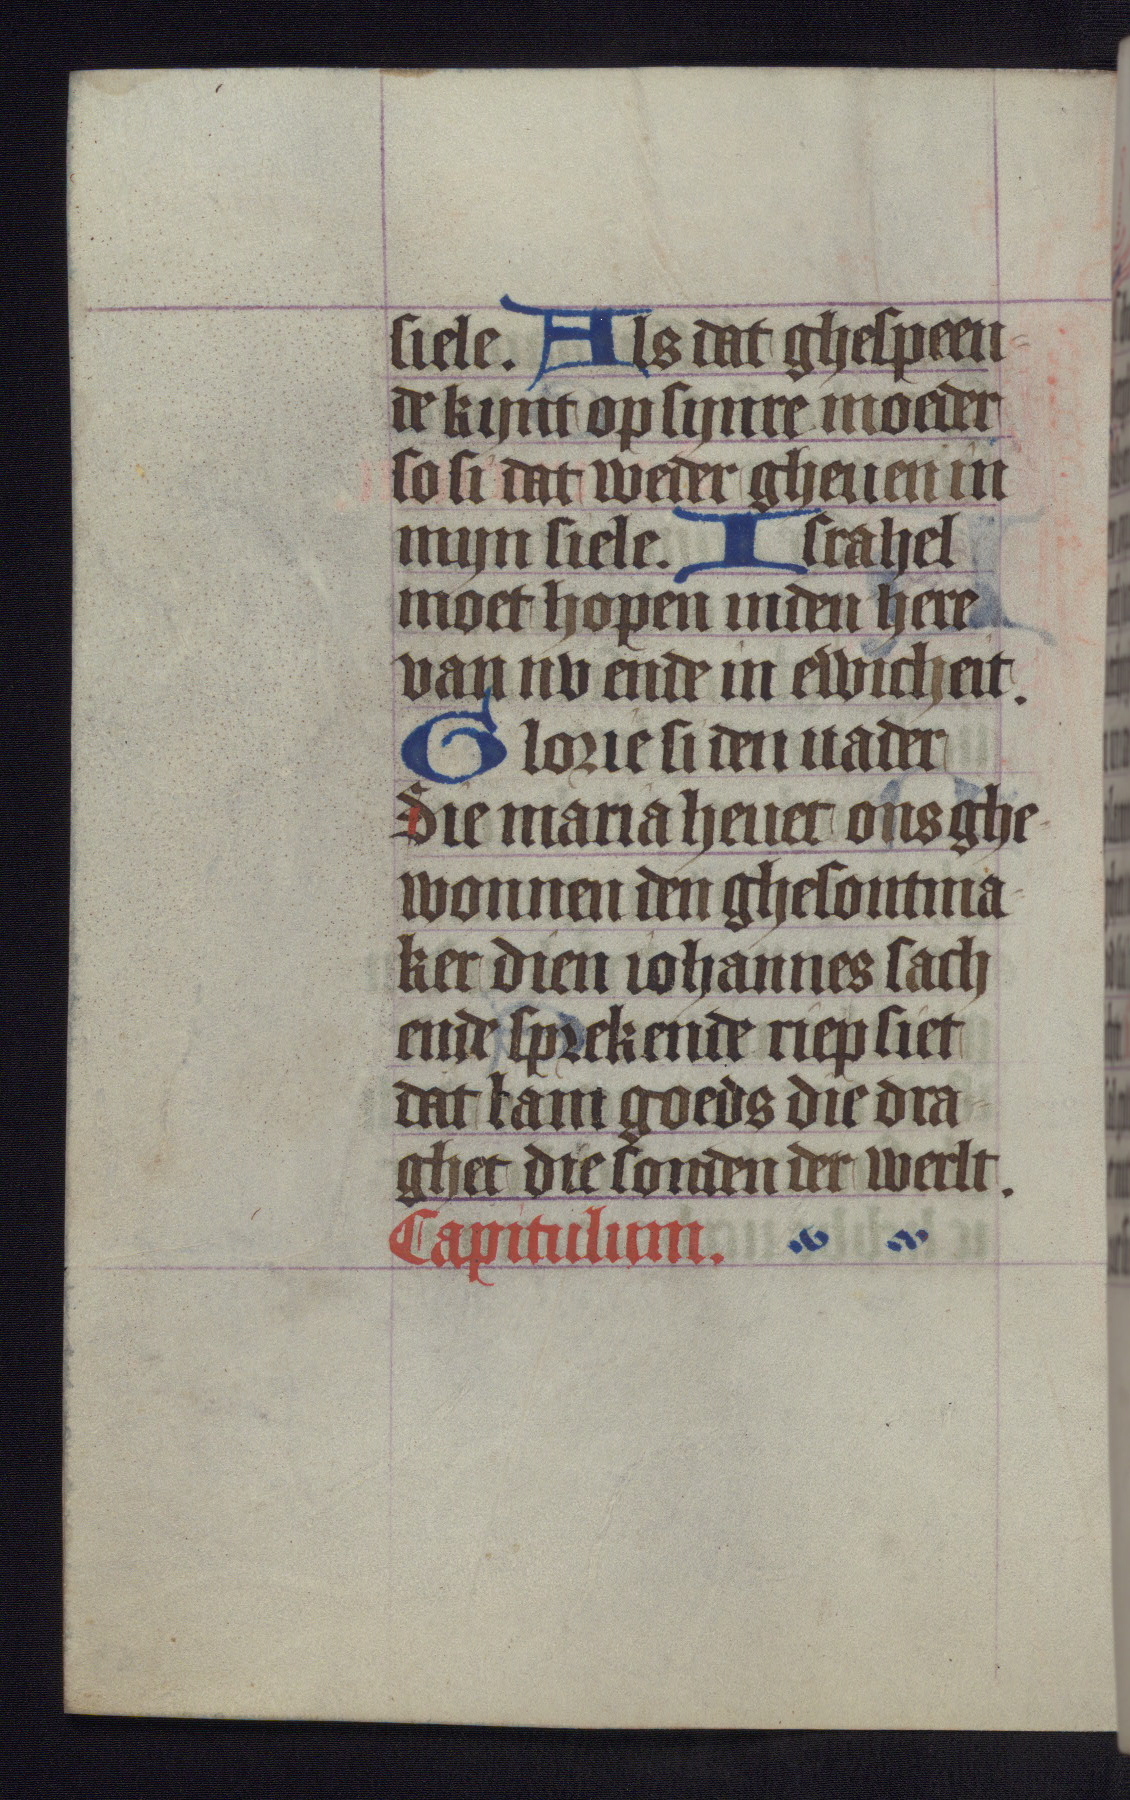 siele. Als dat ghespeen-
de kijnt op sijnre moeder
so si dat weder gheuen in
mijn siele. Israhel
moet hopen inden here
van nv ende in ewicheit.
Glorie si den uader
Sie maria heuet ons ghe-
wonnen den ghesontma-
ker dien iohannes sach
ende sprekende riep siet
dat lam goeds die dra-
ghet die sonden der werlt.
Capitulum.